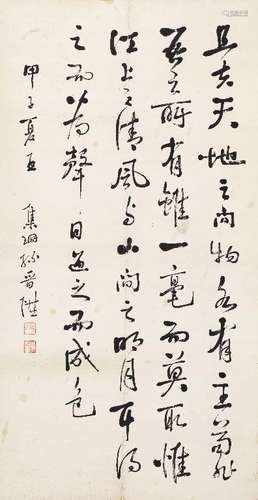 且夫天地之間物各有主苟非
吾之所有雖一毫而莫取惟
江上之清風与山間之明月耳得
之而為聲目遇之而成色
甲子夏五
集珊孫晉陞